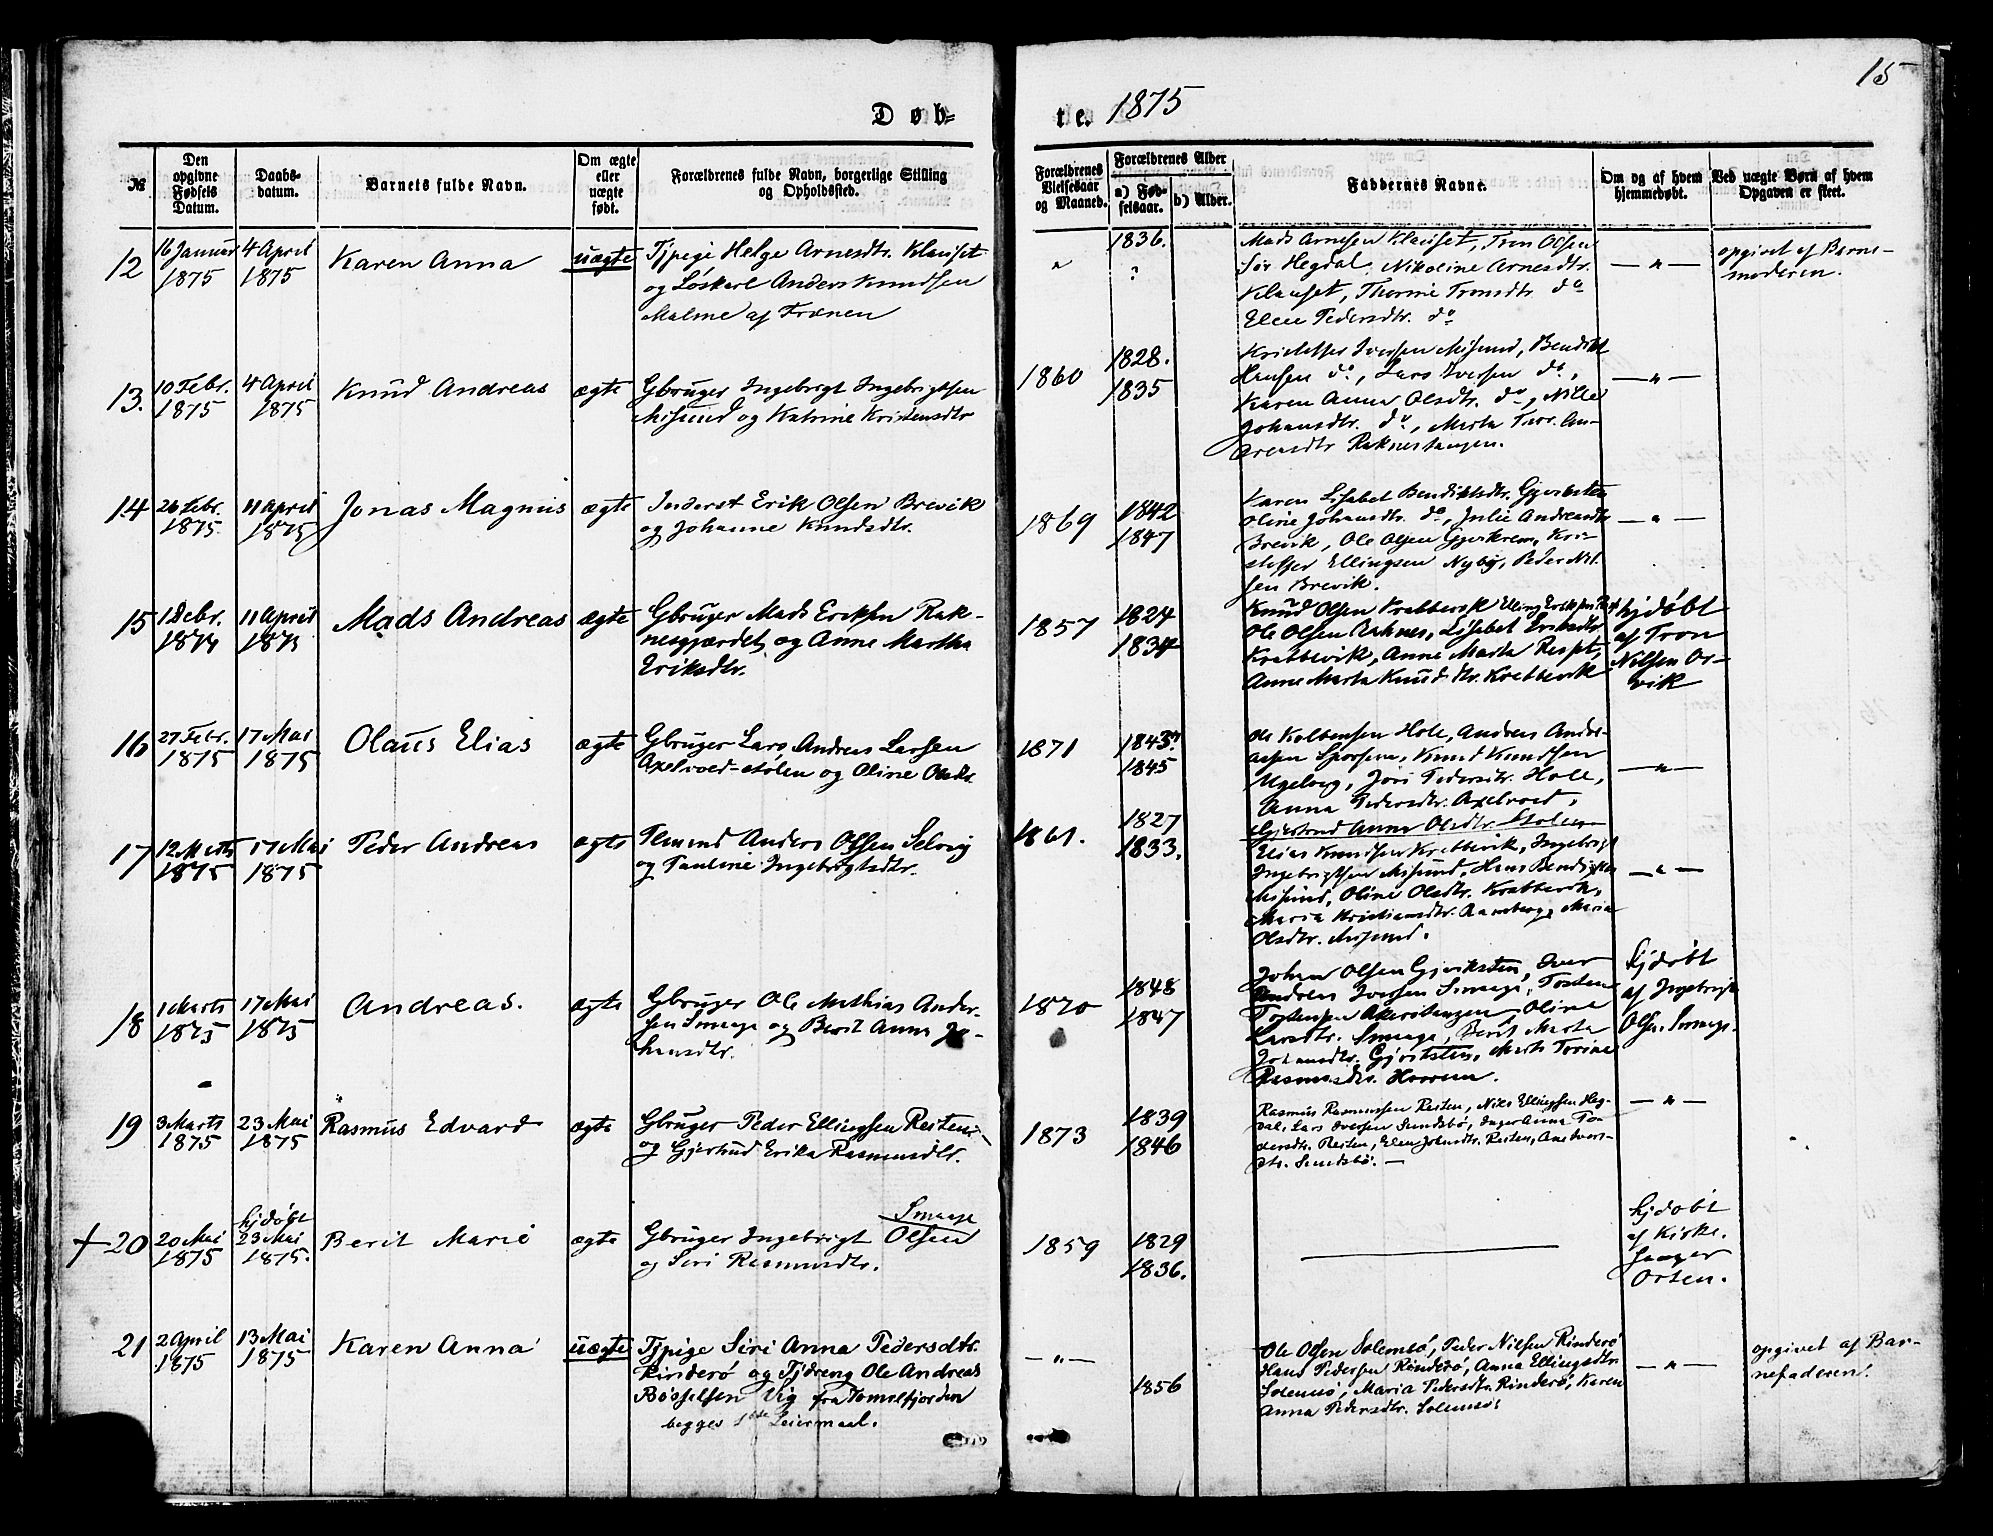 15
Døb=
te. 1875
№
Den opgivne Fødsels Datum.
Daabs-datum.
Barnets fulde Navn.
Om ægte eller uægte født.
Forældrenes fulde Navn, borgerlige Stilling og Opholdssted.
Forældrenes Vielsesaar og Maaned.
Forældrenes Alder
a) Fødselsaar.
b) Alder.
Faddernes Navne.
Om og af hvem hjemmedøbt.
Ved uægte Børn af hvem Opgaven er skeet.
12
16 Januar
1875
4 April
1875
Karen Anna
uægte
Tjpige Helge Arnesdtr. Klauset
og Løskarl Anders Knudsen
Malme af Frænen
"
1836.
?
Mads Arnesen Klauset, Tron Olsen
Sør Hegdal, Nikoline Arnesdtr.
Klauset, Thorine Tronsdtr. do
Elen Pedersdtr. do
— " —
opgivet af Barne-
moderen.
13.
10 Febr.
1875
4 April
1875
Knud Andreas
ægte
Gbruger Ingebrigt Ingebrigtsen
Misund og Katrine Kristensdtr
1860
1828.
1835
Kristoffer Iversen Misund, Bendikt
Hansen do, Lars Iversen do,
Karen Anna Olsdtr. do, Nille
Johansdtr. do, Marta
Raknestangen.
— " —
14
26 Febr.
1875
11 April
1875
Jonas Magnus
ægte
Inderst Erik Olsen Brevik
og Johanne Knudsdtr.
1869
1842
1847
Karen Lisabet Bendiktsdtr. Gjviksten
Oline Johansdtr. do, Julie Andreasdtr
Brevik, Ole Olsen Gjvikrem, Kri-
stoffer Ellingsen Nybø, Peder Nil-
sen Brevik.
— " —
15
1 Debr.
1874
11 April
1875
Mads Andreas
ægte
Gbruger Mads Eriksen Rak-
nesgjærdet og Anne Martha
Eriksdtr.
1857
1824
1834
Knud Olsen Krabbevik Elling Eriksen
Ole Olsen Raknes, Lisabet Eriksdtr
Krabbevik, Anne Marta
Anne Marta Knudsdtr. Krabbevik
hjdøbt
af Tron
Nilsen Or-
vik
16
27 Febr.
1875
17 Mai
1875
Olaus Elias
ægte
Gbruger Lars Andreas Larsen
Axelvoed-stølen og Oline Olsdtr
1871
1843.
1845
Ole Kolbensen Hole, Andreas Andre-
asen Sporsem, Knud Knudsen
Ugelvig, Jori Pedersdtr. Hole,
Anna Pedersdtr. Axelvoed,
Gjertrud Anna Olsdtr. Stolen
— " —
17
12 Marts
1875
17 Mai
1875
Peder Andreas
ægte
Flmand Anders Olsen Selvig
og Pauline Ingebrigtsdtr.
1861.
1827
1833.
Elias Knudsen Krabbevik, Ingebrigt
Ingebrigtsen Misund, Hans Bendiktsen
Misund, Oline Olsdtr. Krabbevik,
Maria Kristiansdtr. Maria
Olsdtr. Misund.
— " —
18
1 Marts
1875
17 Mai
1875
Andreas.
ægte
Gbruger Ole Mathias Ander-
sen Smaage og Berit Anna Jo-
hansdtr.
1870
1848
1847
Johan Olsen Gjviksten, Iver
Andreas Iversen Smaage, Tosten
Tostensen Akerstangen, Oline
Larsdtr. Smaage, Berit Marta
Johansdtr. Gjviksten, Marta Torine
Rasmusdtr. Harrem.
hjdøbt
af Ingebrigt
Olsen Smaage.
19
3 Marts
1875
23 Mai
1875
Rasmus Edvard
ægte
Gbruger Peder Ellingsen Resten
og Gjertrud Erika Rasmusdtr.
1873
1839
1846
Rasmus Rasmussen Resten, Nils Ellingsen Heg-
dal, Lars Iversen Sundsbø, Inger Anna Pe-
dersdtr. Resten, Elen Johansdtr. Resten, Ane Ivers-
dtr. Sundsbø. —
— " —
+20
20 Mai
1875
hjdøbt
23 Mai
1875.
Berit Marie
ægte
Smaage
Gbruger Ingebrigt Olsen
og Siri Rasmusdtr.
1859
1829
1836.
hjdøbt
af Kirke-
sanger
Orten.
21
2 April
1875
13 Mai
1875
Karen Anna
uægte
Tjpige Siri Anna Pedersdtr.
Rinderø og Tjdreng Ole Andreas
Vig fra Tomrefjorden
begges 1ste Leiermaal.
— " —
1856
Ole Olsen Solemsø, Peder Nilsen Rinderø
Hans Pedersen Rinderø, Anna Ellingsdtr.
Solemsø, Maria Pedersdtr. Rinderø, Karen
Anna Pedersdtr. Solemsø
— " —
opgivet af Bar-
nefaderen.